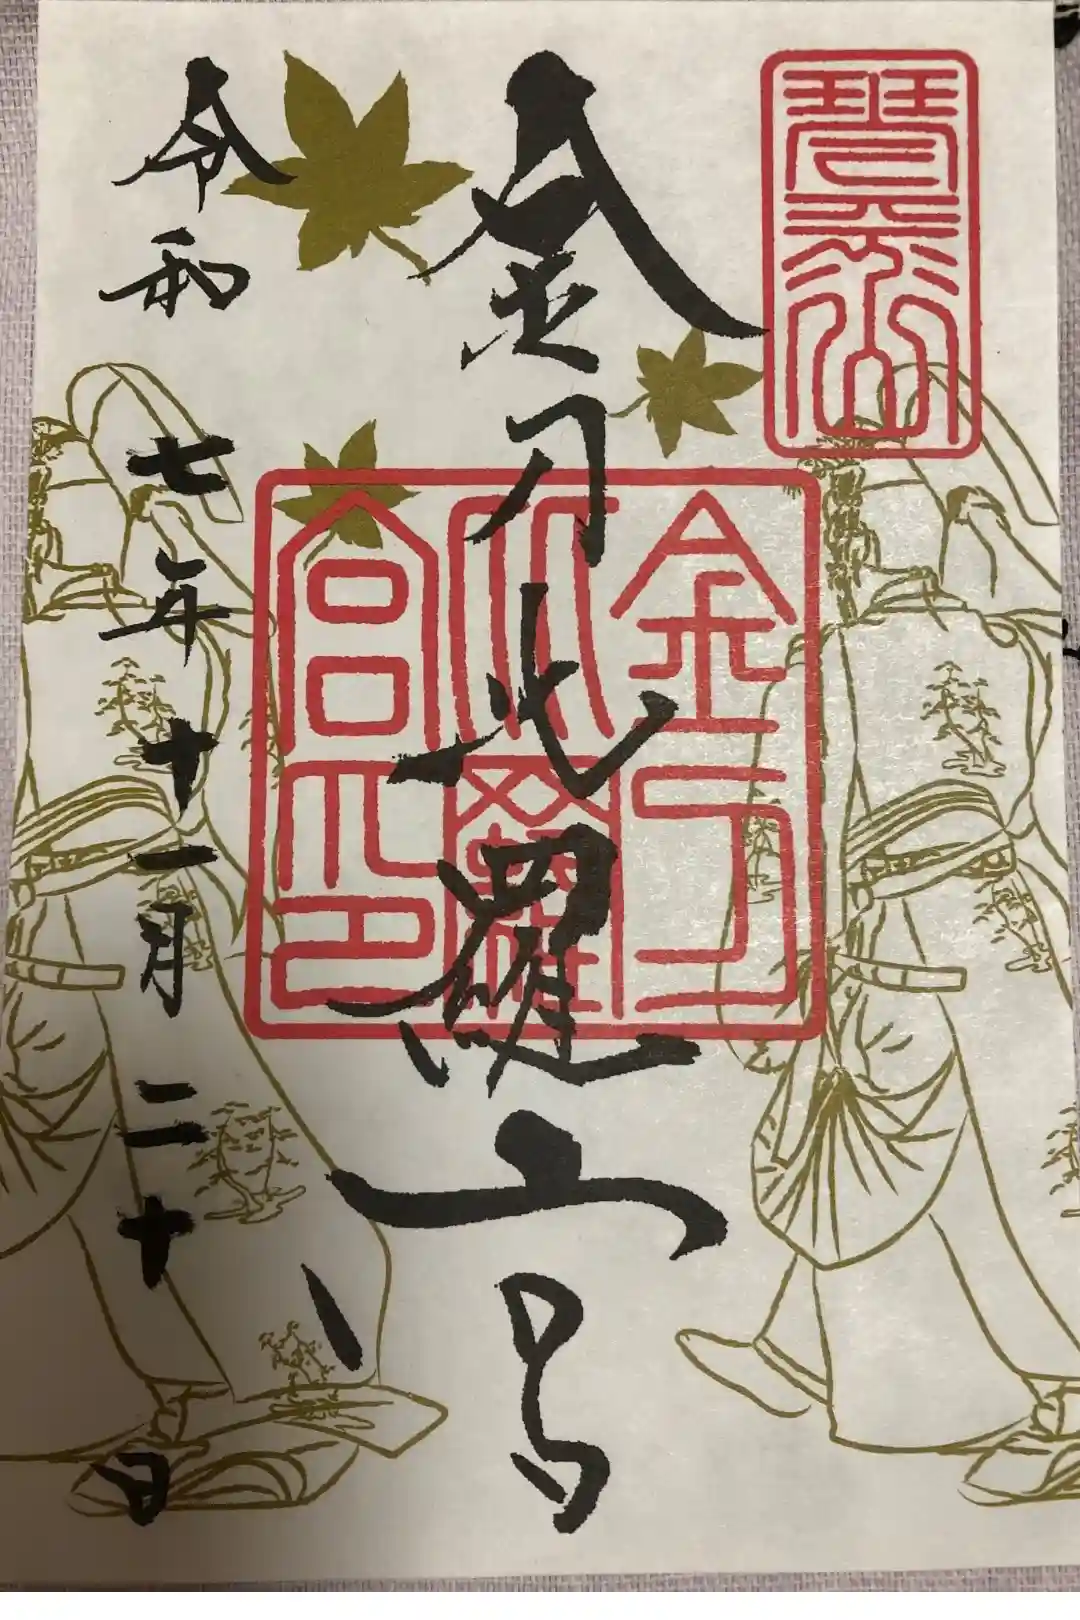 琴平山
金刀比羅宮
金刀比羅宮之印
令和七年十一月二十日